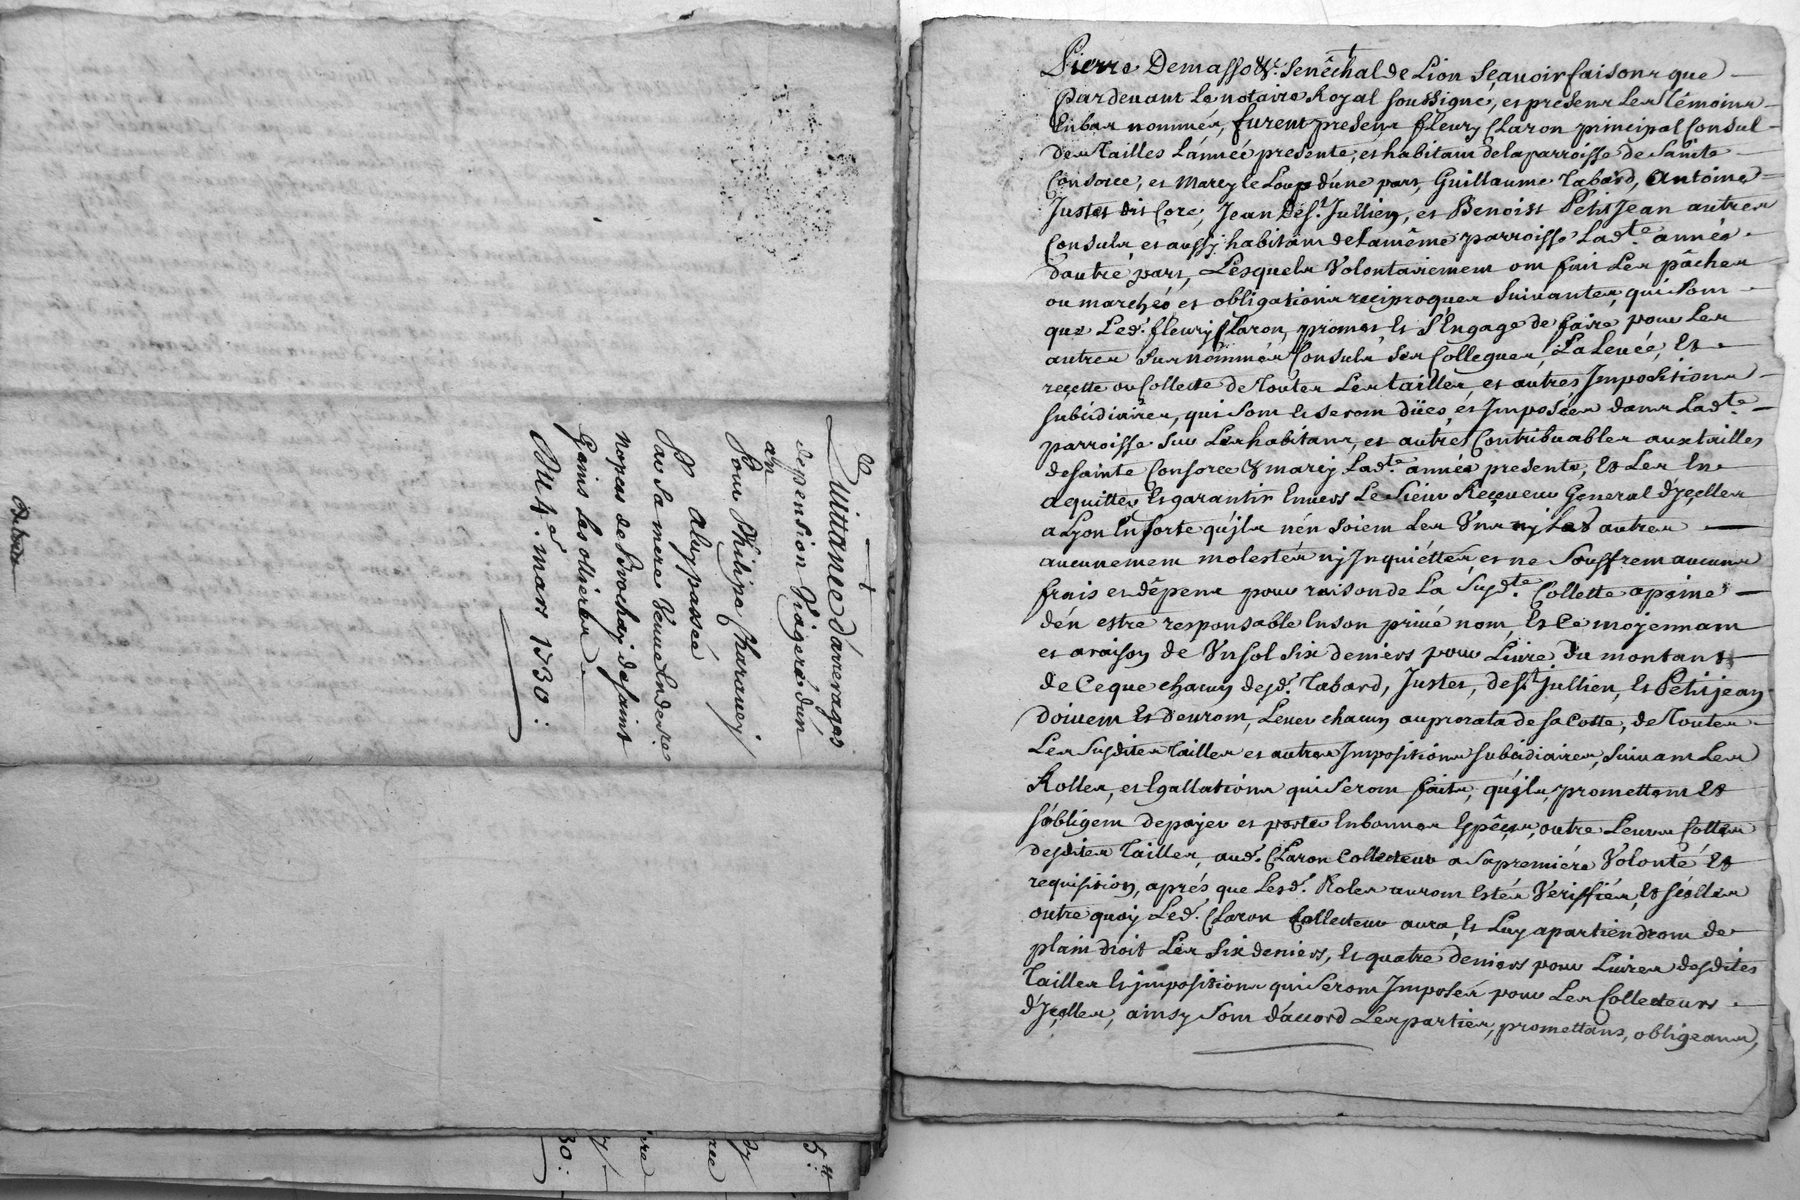 Quittance d'arrerages
de pension Viagere d'un
an
Pour Philipe Charavey
P. aluy passée
Par Sa mere Veuve Ende re
Nopces de Brochay de saint
Genis Les ollieres
Du 4e. mars 1730:
Pierre Demasso &c. Senêchal de Lion Sçavoir faisons que
Pardevant Le notaire Royal soussigné, et presens Les Témoins
Enbas nommés, furent presens fleury Claron principal Consul
des Tailles L'année presente, et habitant de la parroisse de Sainte
Consorce, et Marcy le Loup d'une part, Guillaume Tabard, Antoine
Justet dit Core, Jean Des.t Jullien, et Benoist Petit Jean autres
Consuls et aussy habitans de la même parroisse Lad.te année
d'autre part, Lesquels Volontairement ont fait Les pâches
ou marchés et obligations reciproques Suivantes, qui Sont
que Led. fleury Claron, promet Et S'Engage de faire pour Les
autres Surnommés Consuls Ses Collegues, La Levée, Et
reçette ou Collecte de Toutes Les tailles, et autres Impositions
Subsidiaires, qui Sont et seront dües, et Imposées dans Lad.te
parroisse Sur Les habitans, et autres Contribuables aux tailles
de Sainte Consorce & marcy Lad.te année presente, Et Les En
aquitter Et garantir Envers Le Sieur Reçeveur General d'yçelles
a Lyon En Sorte qu'jls n'en Soient Les Uns nj Les autres
aucunement molestés nj Inquiéttés et ne Souffrent aucuns
frais et dêpens pour raison de La Susd.te Collette a peine
d'en estre responsable En son privé nom, Et Ce moyennant
et a raison de Un sol Six deniers pour Livre Du montant
de Ce que chacun desd. Tabard, Justet, de S.t Jullien, Et Petitjean
doivent Et devront, Lever chacun au prorata de sa Cotte, de Toutes
Les Susdites Tailles et autres Impositions subsidiaires, Suivant Les
Rolles, et Egallations qui Seront faits, qu'jls promettent Et
s'obligent de payer et porter En bonnes Espêçes, outre Leurs Cottes
desdites Tailles, aud. Claron Collecteur a Sa premiére Volonté Et
requisition, aprés que Lesd. Roles auront Estés Veriffiés, Et séellés
outre quoy Led. Claron Collecteur aura, Et Luy apartiendront de
plain droit Les Six deniers, Et quatre deniers pour Livres desdites
Tailles Et jmpositions qui Seront Imposés pour Les Collecteurs
d'Jçelles, ainsy Sont d'accord Les parties, promettans, obligeans,